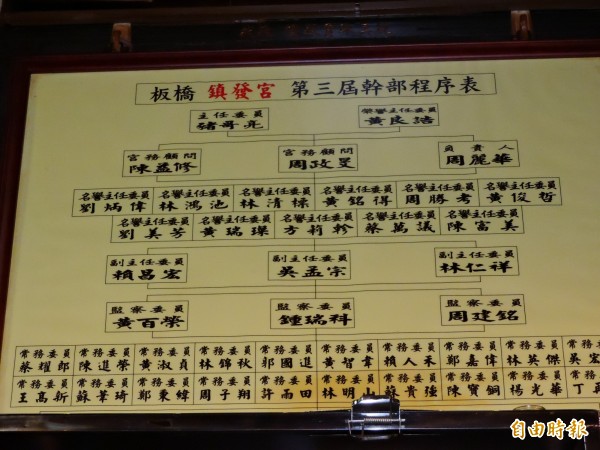 板橋 鎮發宮 第三屆幹部程序表
主任委員 榮譽主任委員
豬哥亮 黃良浩
宮務顧問 宮務顧問 負責人
陳孟修 周政旻 周麗華
名譽主任委員 名譽主任委員 名譽主任委員 名譽主任委員 名譽主任委員 名譽主任委員
劉炳偉 林鴻池 林清標 黃銘得 周勝考 黃俊哲
名譽主任委員 名譽主任委員 名譽主任委員 名譽主任委員 名譽主任委員
劉美芳 黃瑞璨 方莉軫 蔡萬議 陳富美
副主任委員 副主任委員 副主任委員
賴昌宏 吳孟宗 林仁祥
監察委員 監察委員 監察委員
黃百榮 鍾瑞科 周建銘
常務委員 常務委員 常務委員 常務委員 常務委員 常務委員 常務委員 常務委員 常務委員 常務
蔡耀郎 陳進榮 黃淑貞 林錦秋 郭國進 黃智偉 賴人禾 鄭嘉偉 林英傑 吳宏
常務委員 常務委員 常務委員 常務委員 常務委員 常務委員 常務委員 常務委員 常務委員 常務
王髙新 蘇菁琦 鄭秉緯 周子翔 許雨田 林明山 貴強 陳寶銅 楊光華 丁
自由時報